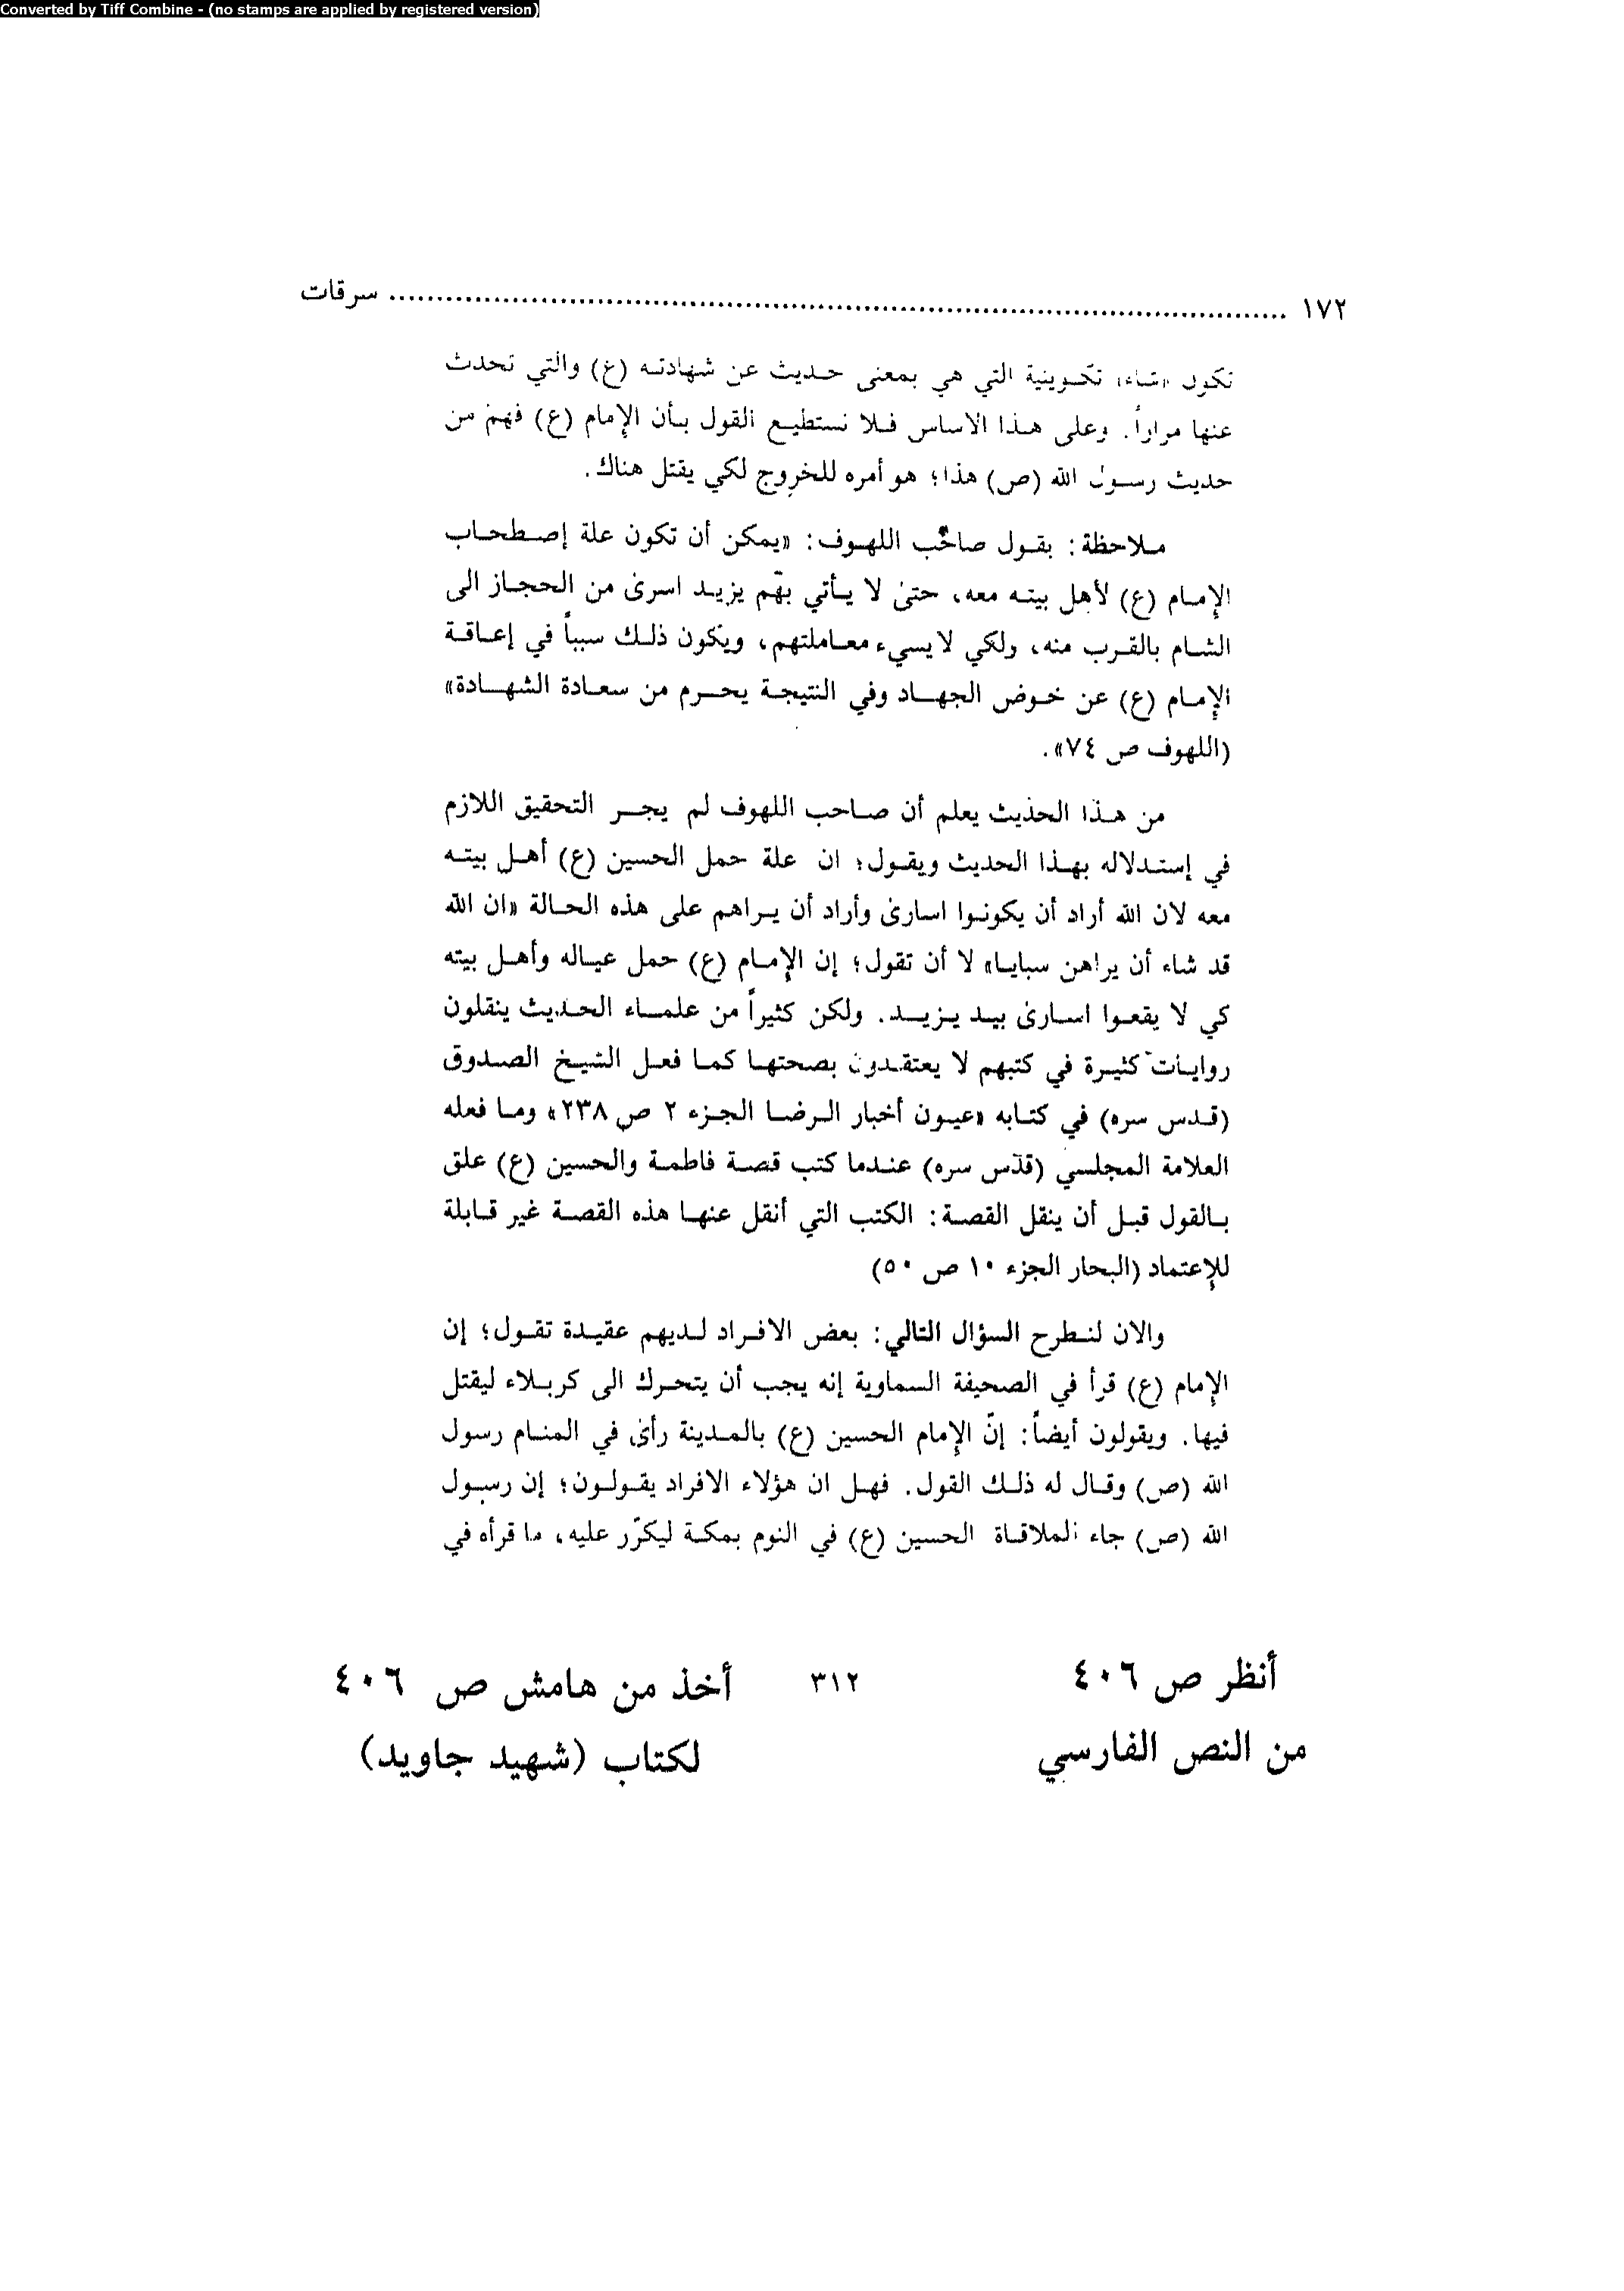 Converted by Tiff Combine - (no stamps are applied by registered version)
١٧٢ ........................................ سرقات
تكون «شاء» تكوينية التي هي بمعنى حديث عن شهادته (ع) والتي تحدث
عنها مراراً. وعلى هذا الاساس فلا نستطيع القول بأن الإمام (ع) فهم من
حديث رسول الله (ص) هذا؛ هو أمره للخروج لكي يقتل هناك.
ملاحظة: يقول صاحب اللهوف: «يمكن أن تكون علة إصطحاب
الإمام (ع) لأهل بيته معه، حتىٰ لا يأتي بهم يزيد اسرىٰ من الحجاز الى
الشام بالقرب منه، ولكي لا يسيء معاملتهم، ويكون ذلك سبباً في إعاقة
الإمام (ع) عن خوض الجهاد وفي النتيجة يحرم من سعادة الشهادة»
(اللهوف ص ٧٤».
من هذا الحديث يعلم أن صاحب اللهوف لم يجر التحقيق اللازم
في إستدلاله بهذا الحديث ويقول؛ ان علة حمل الحسين (ع) أهل بيته
معه لان الله أراد أن يكونوا اسارىٰ وأراد أن يراهم على هذه الحالة «ان الله
قد شاء أن يراهن سبايا» لا أن تقول؛ إن الإمام (ع) حمل عياله وأهل بيته
كي لا يقعوا اسارىٰ بيد يزيد. ولكن كثيراً من علماء الحديث ينقلون
روايات كثيرة في كتبهم لا يعتقدون بصحتها كما فعل الشيخ الصدوق
(قدس سره) في كتابه «عيون أخبار الرضا الجزء ٢ ص ٢٣٨» وما فعله
العلامة المجلسي (قدّس سره) عندما كتب قصة فاطمة والحسين (ع) علق
بالقول قبل أن ينقل القصة: الكتب التي أنقل عنها هذه القصة غير قابلة
للإعتماد (البحار الجزء ١٠ ص ٥٠)
والان لنطرح السؤال التالي: بعض الافراد لديهم عقيدة تقول؛ إن
الإمام (ع) قرأ في الصحيفة السماوية إنه يجب أن يتحرك الى كربلاء ليقتل
فيها. ويقولون أيضاً: إنّ الإمام الحسين (ع) بالمدينة رأىٰ في المنام رسول
الله (ص) وقال له ذلك القول. فهل ان هؤلاء الافراد يقولون؛ إن رسول
الله (ص) جاء الملاقاة الحسين (ع) في النوم بمكة ليكرّر عليه، ما قرأه في
أنظر ص ٤٠٦ ٣١٢ أخذ من هامش ص ٤٠٦
من النص الفارسي لكتاب (شهيد جاويد)